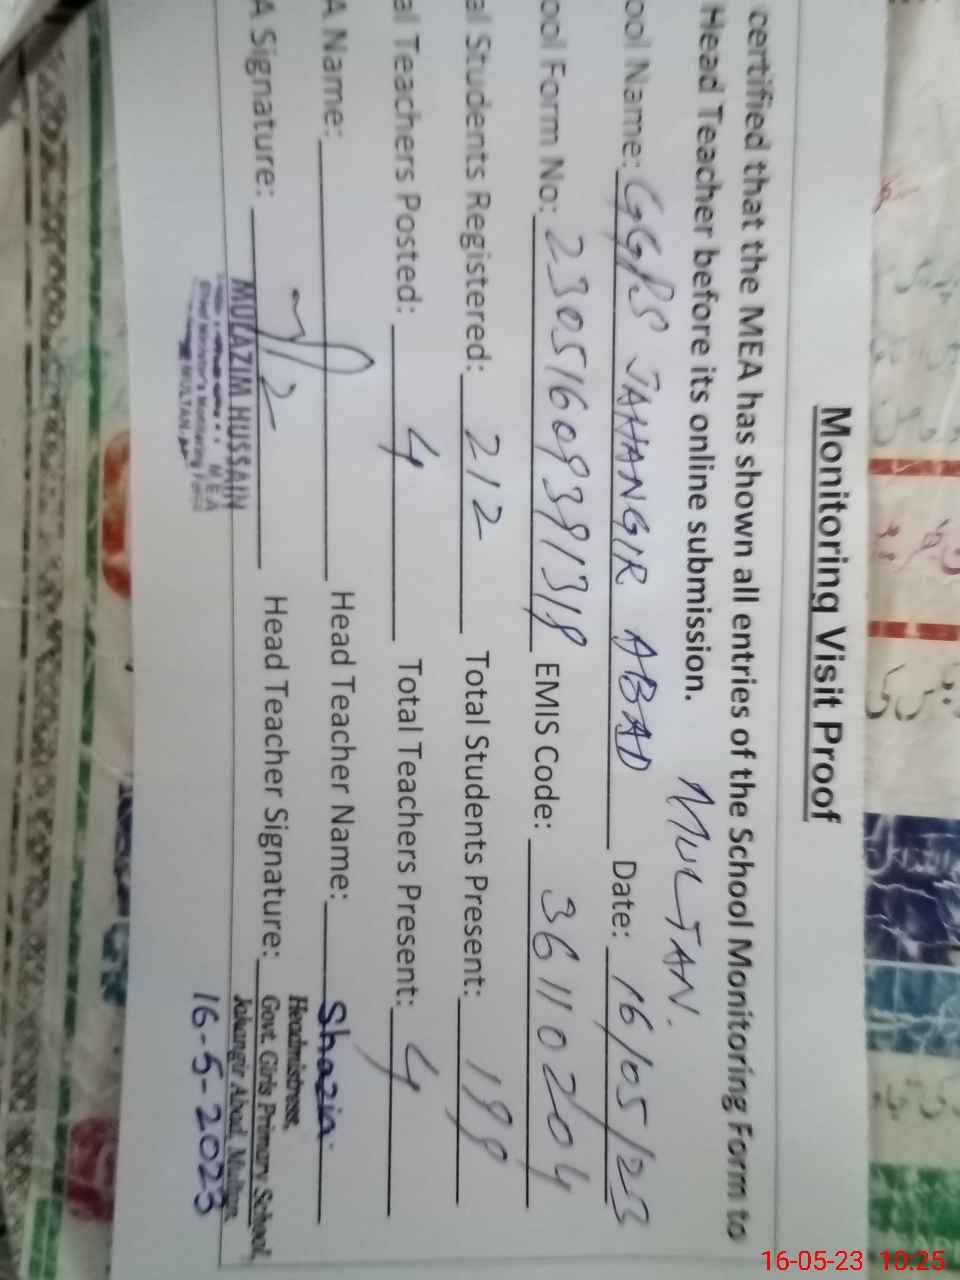 Monitoring Visit Proof
certified that the MEA has shown all entries of the School Monitoring Form to
Head Teacher before its online submission.
MULTAN.
ool Name: GGPS JAHANGIR ABAD Date: 16/05/23
ool Form No: EMIS Code: 36110204
al Students Registered: 212 Total Students Present:
al Teachers Posted: 4 Total Teachers Present: 4
A Name: Head Teacher Name: Shazia
A Signature: Head Teacher Signature:
MULAZIM HUSSAIN
MEA
MULTAN
Headmistress,
Govt. Girls Primary School,
Jahangir Abad, Multan
16-5-2023
16-05-23 10:25